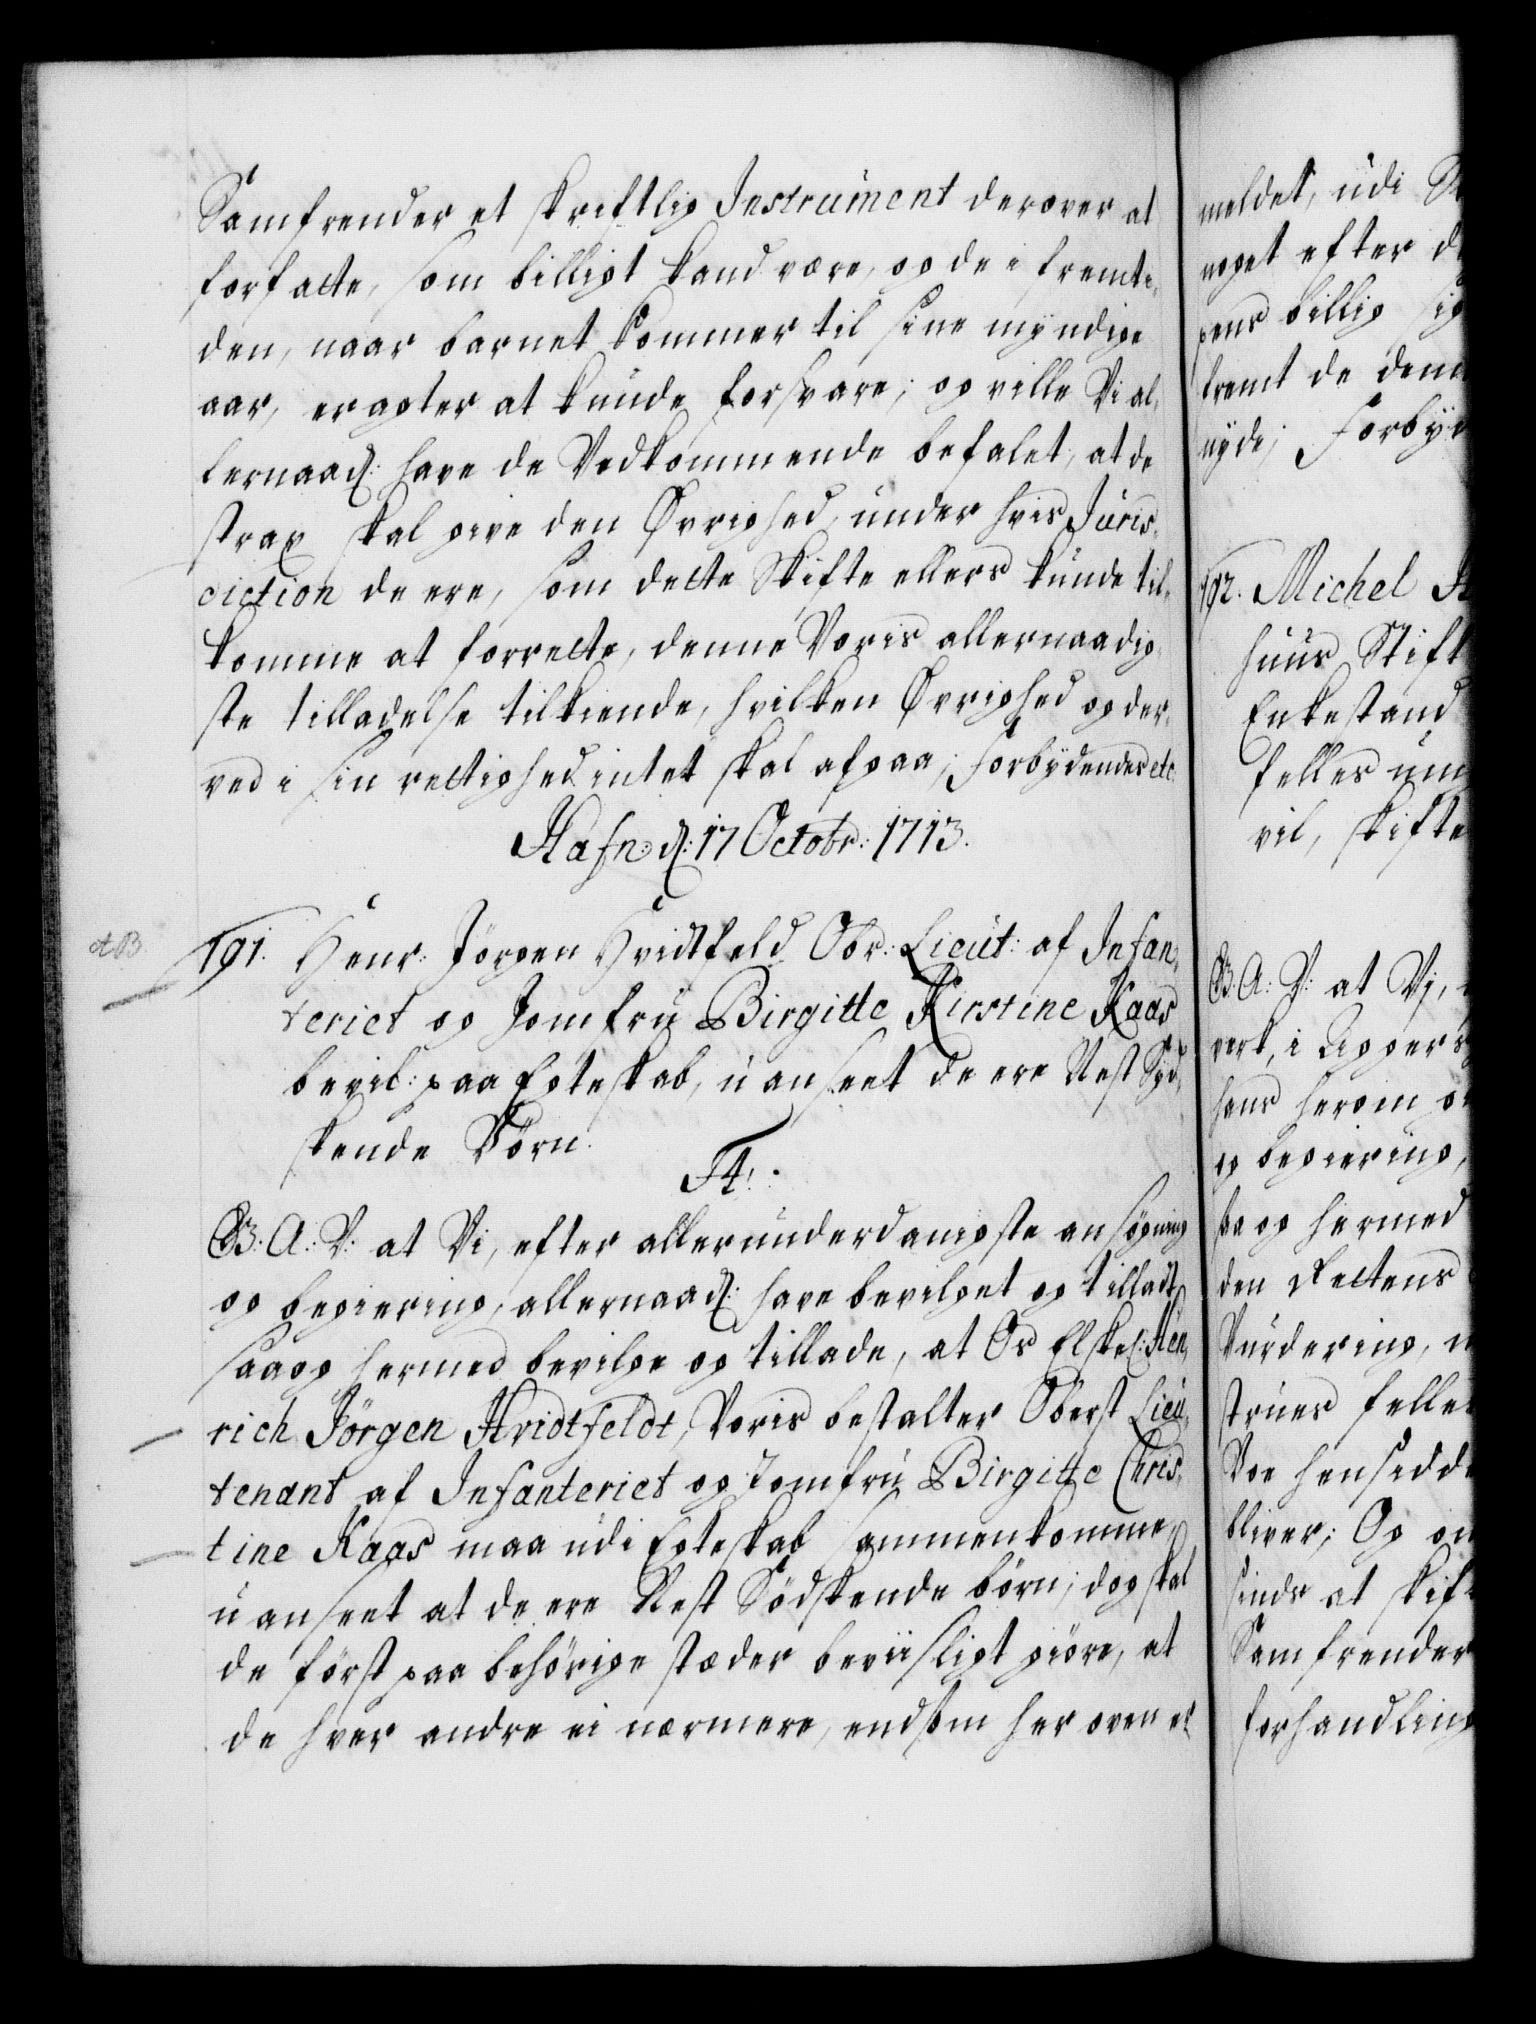 Samfrender et skriftlig Instrument derover at
forfatte, som billigt kand være, og de i fremti-
den, naar barnet kommer til sine myndige
aar, eragter at kunde forsvare; og ville Vi al-
lernaad: have de Vedkommende befalet, at de
strax skal give den Øvrighed, under hvis Juris-
diction de ere, som dette Skifte ellers kunde til-
komme at forrette, denne Voris allernaadig-
ste tilladelse tilkiende, hvilken Øvrighed og der-
ved i sin rettighed intet skal afgaa; Forbydendes etc:
Hafn: d: 17 Octobr: 1713.
AB
191. Henr: Jörgen Hvidtfeld Obr: Lieut: af Infan-
teriet og Jomfru Birgitte Kirstine Kaas
bevil: paa Egteskab, uanseet de ere Nest Sød-
skende Børn.
F4:
G. B: A: V: at Vi, efter allerunderdanigste ansøgning
og begiering, allernaad: have bevilget og tilladt
saa og hermed bevilge og tillade, at Os Elskel: Hen-
rich Jörgen Hvidtfeldt, Voris bestalter Oberst Lieu-
tenant af Infanteriet og Jomfru Birgitte Chris-
tine Kaas maa udi Egteskab sammenkomme,
uanseet at de ere Nest Södskende börn; dog skal
de först paa behörige stæder beviisligt giöre, at
de hver andre ei nærmere, end som her oven er
meldet, udi
noget efter
gens billig
fremt de
nyde; Forbyd
192. Michel
huus Stift
Enkestand
felles
vil, skifte
G. B: A: V: at Vi,
verk, i Agger
hans herom
og begiering,
saa og hermed
den Rettens
Vurdering,
strues felles
Boe hensidde
bliver; Og
sinds at skift
Samfrender
forhandling